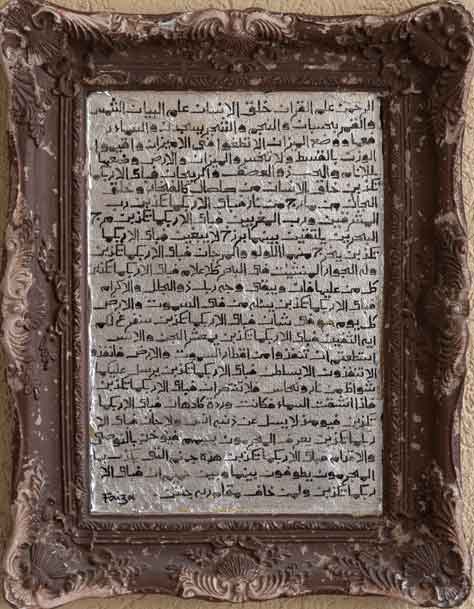 الرحمن علم القران خلق الانسان علم البيان الشمس
و القمر بحسبان و النجم و الشجر يسجدان و السماء ر
فعها و وضع الميزان الا تطغوا في الميزان و اقيموا
الوزن بالقسط و لا تخسروا الميزان و الارض وضعها
للانام و الحب ذو العصف و الريحان فباي الا ربكما
تكذبن خلق الانسان من صلصال كالفخار و خلق
الجان من مارج من نار فباي الا ربكما تكذبن رب
المشرقين و رب المغربين فباي الا ربكما تكذبن مرج
البحرين يلتقين بينهما برزخ لا يبغين فباي الا ربكما
تكذبن يخرج منهما اللولو و المرجان فباي الا ربكما تكذبن
وله الجوار المنشئت في البحر كالاعلام فباي الا ربكما تكذبن
كل من عليها فان و يبقى وجه ربك ذو الجلل و الاكرام
فباي الا ربكما تكذبن يسئله من في السموت و الارض
كل يوم هو في شان فباي الا ربكما تكذبن سنفرغ لكم
ايه الثقلين فباي الا ربكما تكذبن يمعشر الجن و الانس
استطعتم ان تنفذوا من اقطار السموت و الارض فانفذوا
لا تنفذون الا بسلطن فباي الا ربكما تكذبن يرسل عليكما
شواظ من نار و نحاس فلا تنتصران فباي الا ربكما تكذبن
فاذا انشقت السماء فكانت وردة كالدهان فباي الا ربكما
تكذبن فيومئذ لا يسئل عن ذنبه انس و لا جان فباي الا ر
بكما تكذبن يعرف المجرمون بسيمهم فيوخذ بالنوصي
و الاقدام فباي الا ربكما تكذبن هذه جهنم التي يكذب بها
المجرمون يطوفون بينها و بين حميم ان فباي الا
ربكما تكذبن و لمن خاف مقام ربه جنتن
Faiza